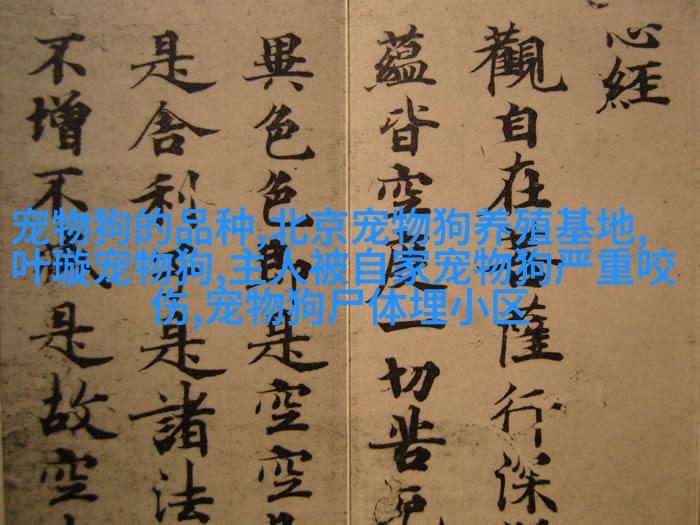 心經
觀自在菩薩行深
蘊皆空度一切苦厄
異色色即是空空
是舍利子是諸法
不增不減是故空
宠物狗的品种,北京宠物狗养殖基地,
叶璇宠物狗,主人被自家宠物狗严重咬
伤,宠物狗尸体埋小区